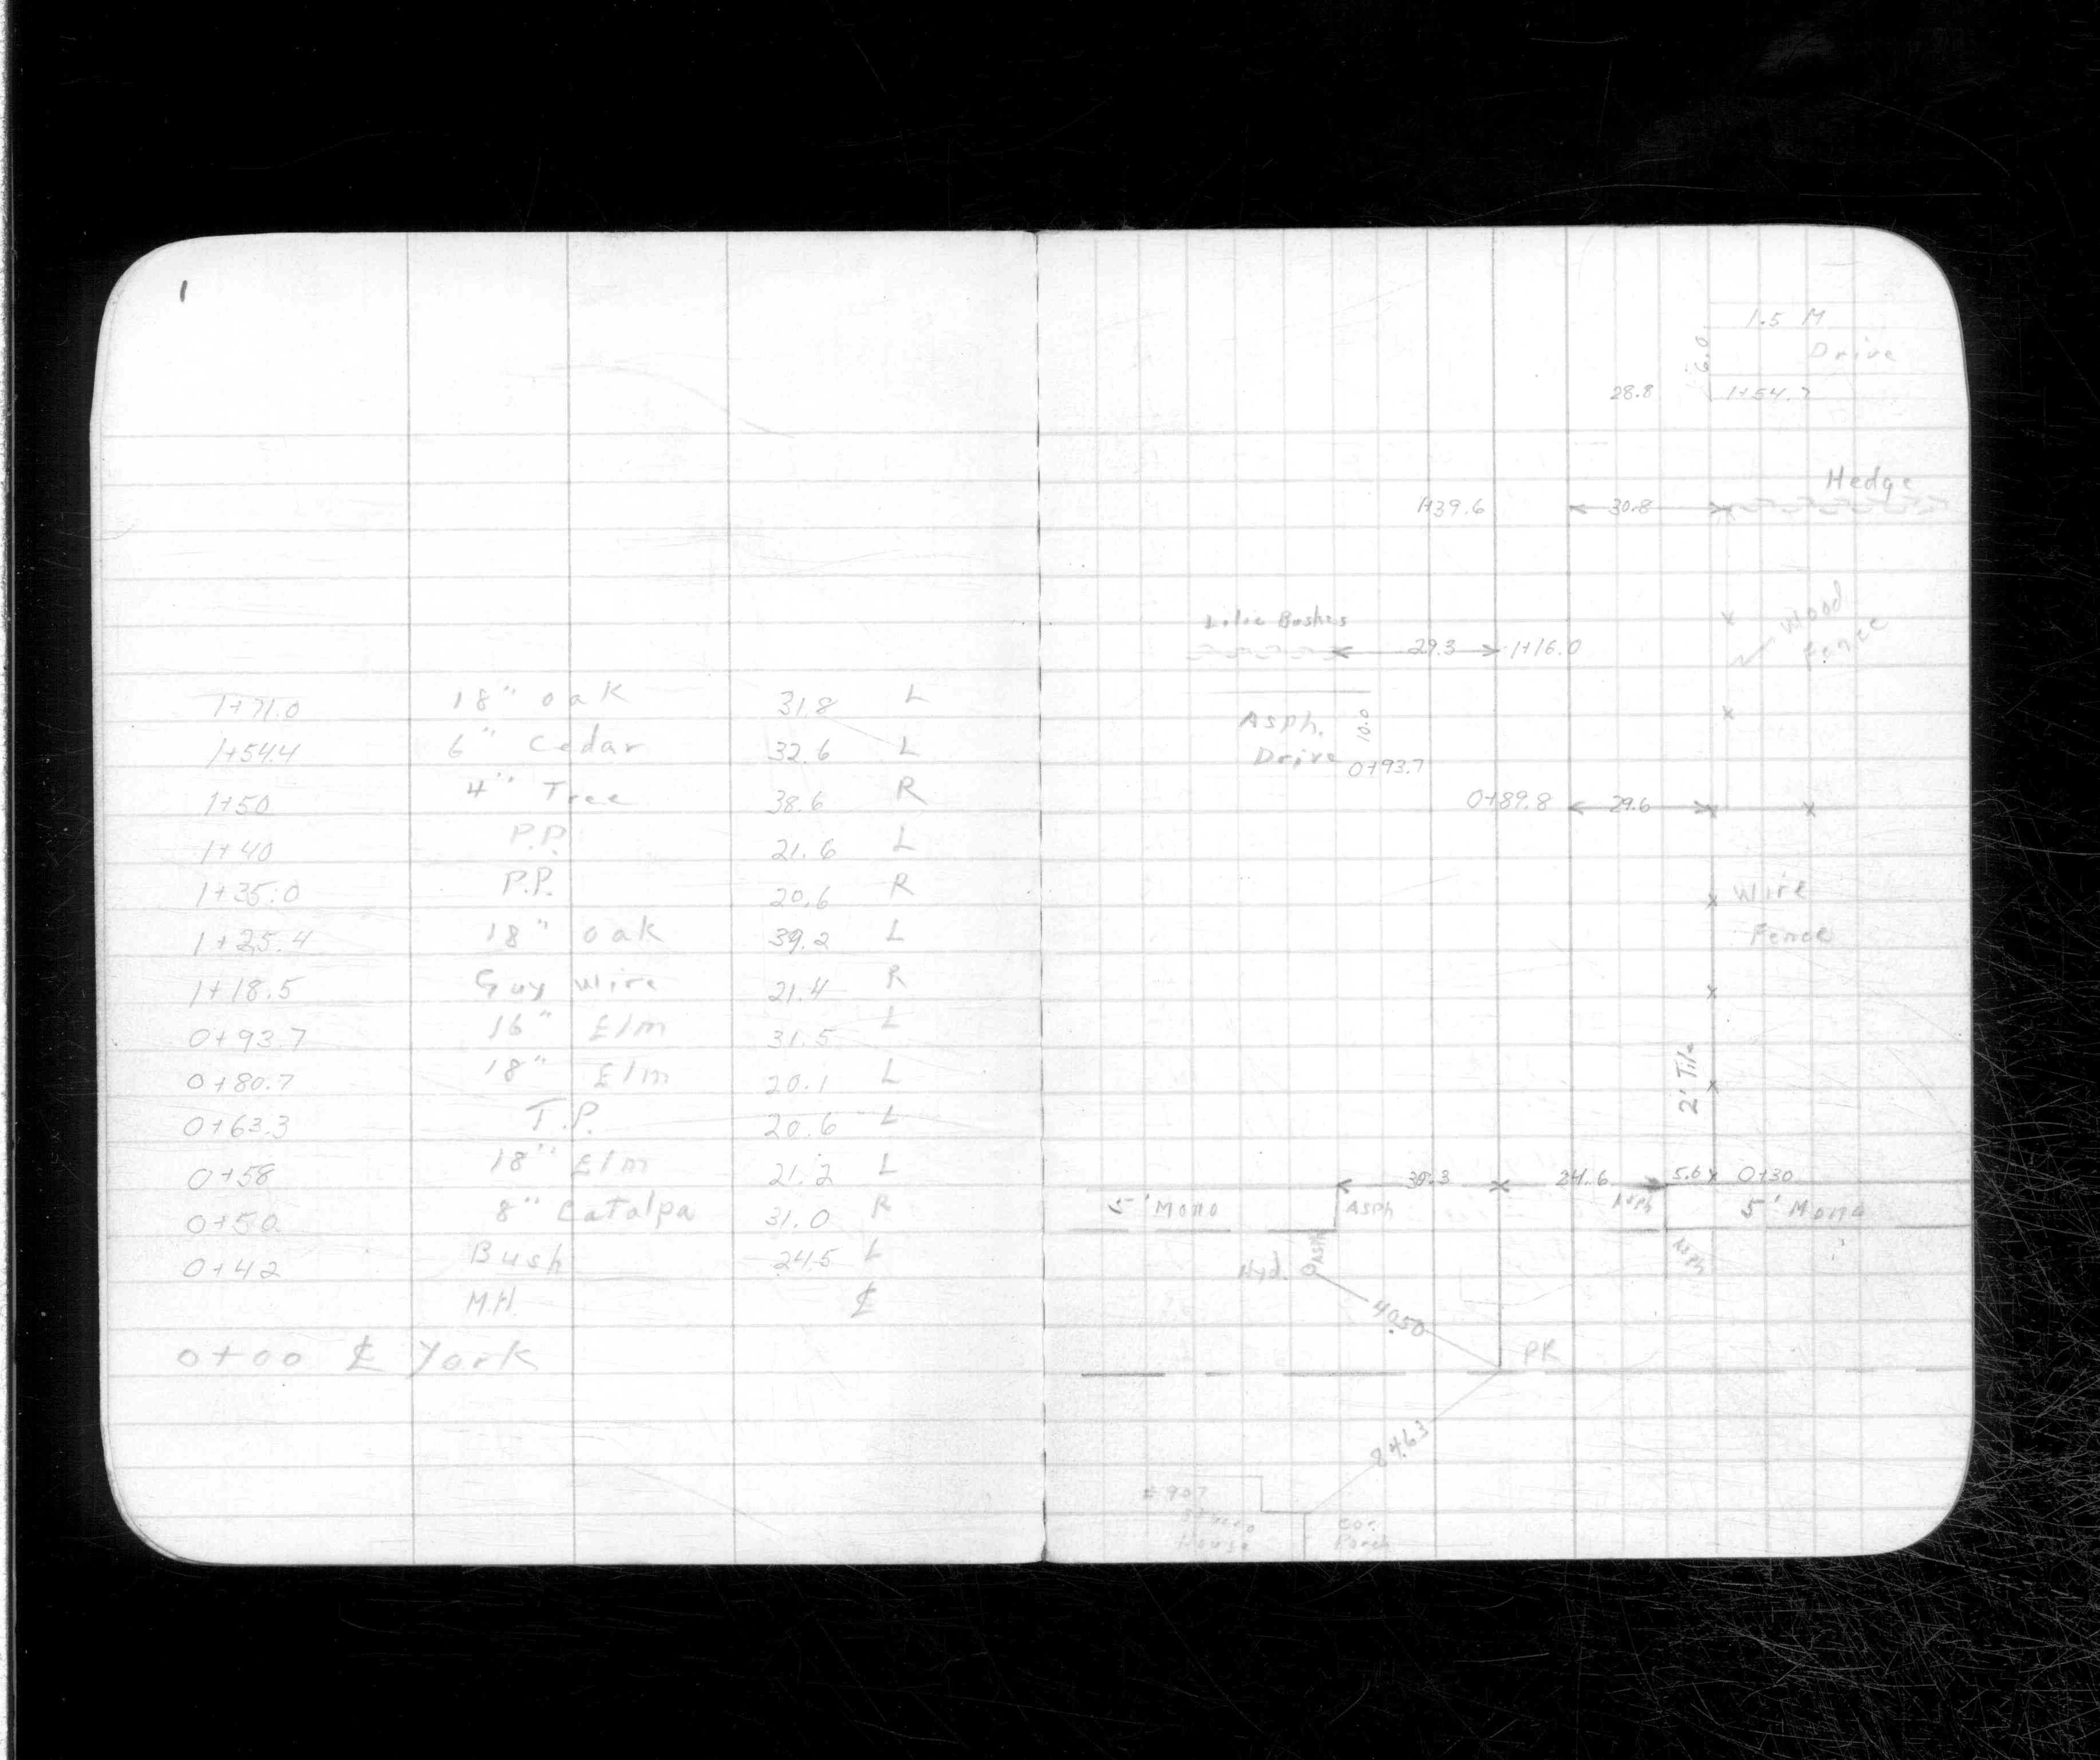 1
1+71.0 18" oak 31.8 L
1+54.4 6" Cedar 32.6 L
1+50 4" Tree 38.6 R
1+40 P.P. 21.6 L
1+35.0 P.P. 20.6 R
1+25.4 18" oak 39.2 L
1+18.5 Guy Wire 21.4 R
0+93.7 16" Elm 31.5 L
0+80.7 18" Elm 20.1 L
0+63.3 T.P. 20.6 L
0+58 18" Elm 21.2 L
0+50 8" Catalpa 31.0 R
0+42 Bush 24.5 L
M.H. ℄
0+00 ℄ York
1.5 M
Drive
6.0
28.8 1+54.7
Hedge
1+39.6 30.8
Wood
Fence
Lolic Bushes
29.3 1+16.0
Asph. 10.0
Drive 0+93.7
0+89.8 29.6
Wire
Fence
2' Tile
24.6 5.6 0+30
5' Mono Asph Asph 5' Mono
Asph Asph
Hyd.
40.50
PK
84.63
#907
House
Cor.
Porch